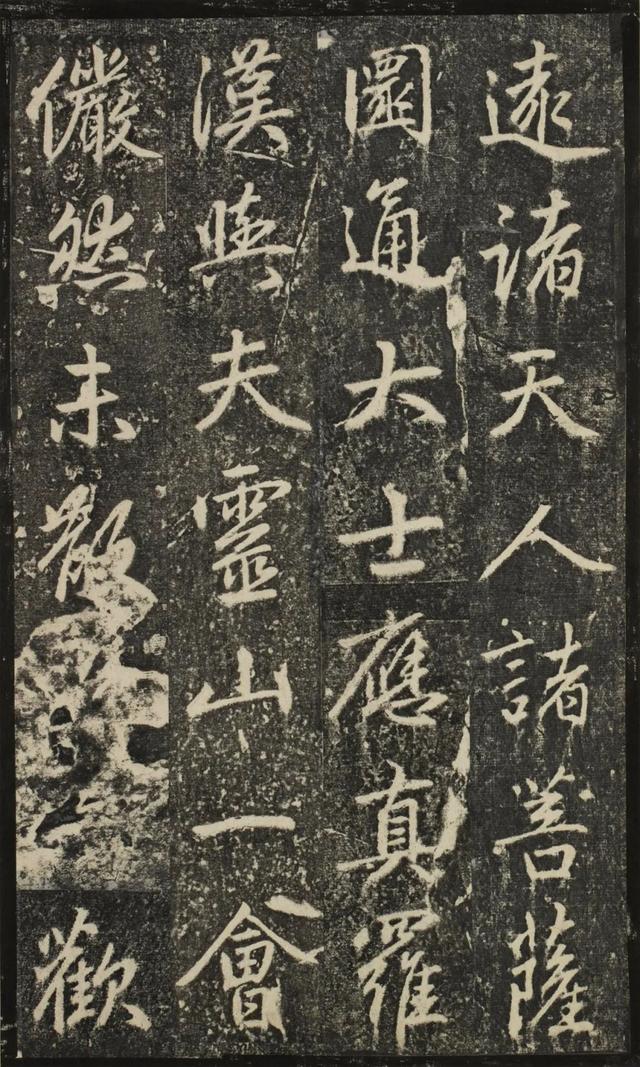 遠諸天人諸菩薩
圜通大士應真羅
漢與夫靈山一會
儼然未散歡